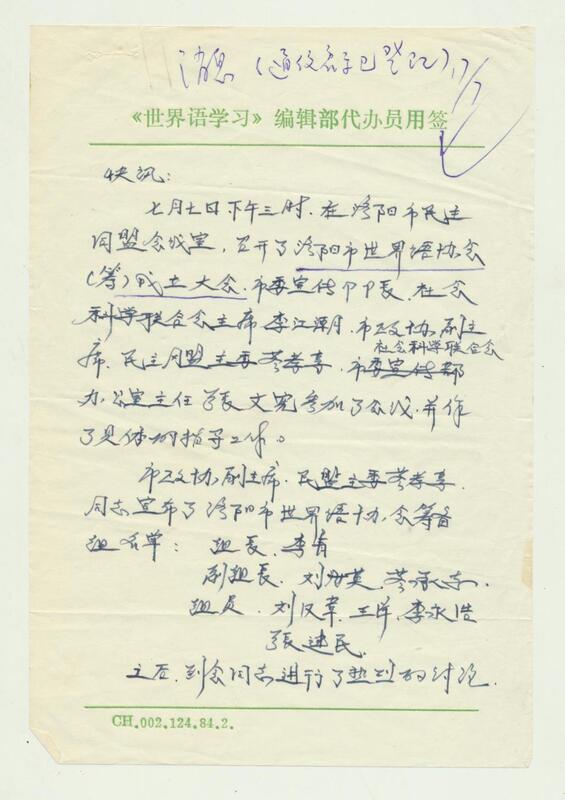 消息（通仪名字已登记）17/7
《世界语学习》编辑部代办员用签
快讯：
七月七日下午三时，在洛阳市民主
同盟会议室，召开了洛阳市世界语协会
（筹）成立大会．市委宣传部部长，社会
科学联合会主席李江潮．市政协副主
席、民主同盟主委 孝享．市委宣传部
社会科学联合会
办公室主任张文宪参加了会议，并作
了具体的指导工作。
市政协副主席，民盟主委 孝享
同志宣布了洛阳市世界语协会筹备
组名单：组长，李育
副组长，刘 英，
组员，刘汉章，王洋，李永浩
张建民．
之后，到会同志进行了热烈的讨论．
CH.002.124.84.2.